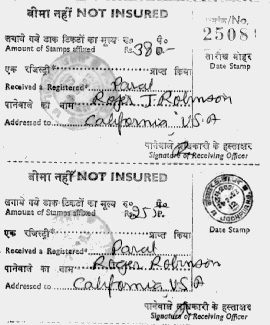 बीमा नहीं NOT INSURED
No.
2508
लगाये गये डाक टिकटों का मूल्य रु० पै०
Amount of Stamps affixed Rs. 380.-
तारीख मोहर
Date Stamp
एक रजिस्ट्री* प्राप्त किया
Received a Registered* Parcel
पानेवाले का नाम Roger J. Robinson
Addressed to California U.S.A
पानेवाले अधिकारी के हस्ताक्षर
Signature of Receiving Officer
बीमा नहीं NOT INSURED
लगाये गये डाक टिकटों का मूल्य रु० पै०
Amount of Stamps affixed Rs. 255 P.
एक रजिस्ट्री* प्राप्त किया
Date Stamp
Received a Registered* Parcel
पानेवाले का नाम Roger Robinson
Addressed to California USA
पानेवाले अधिकारी के हस्ताक्षर
Signature of Receiving Officer